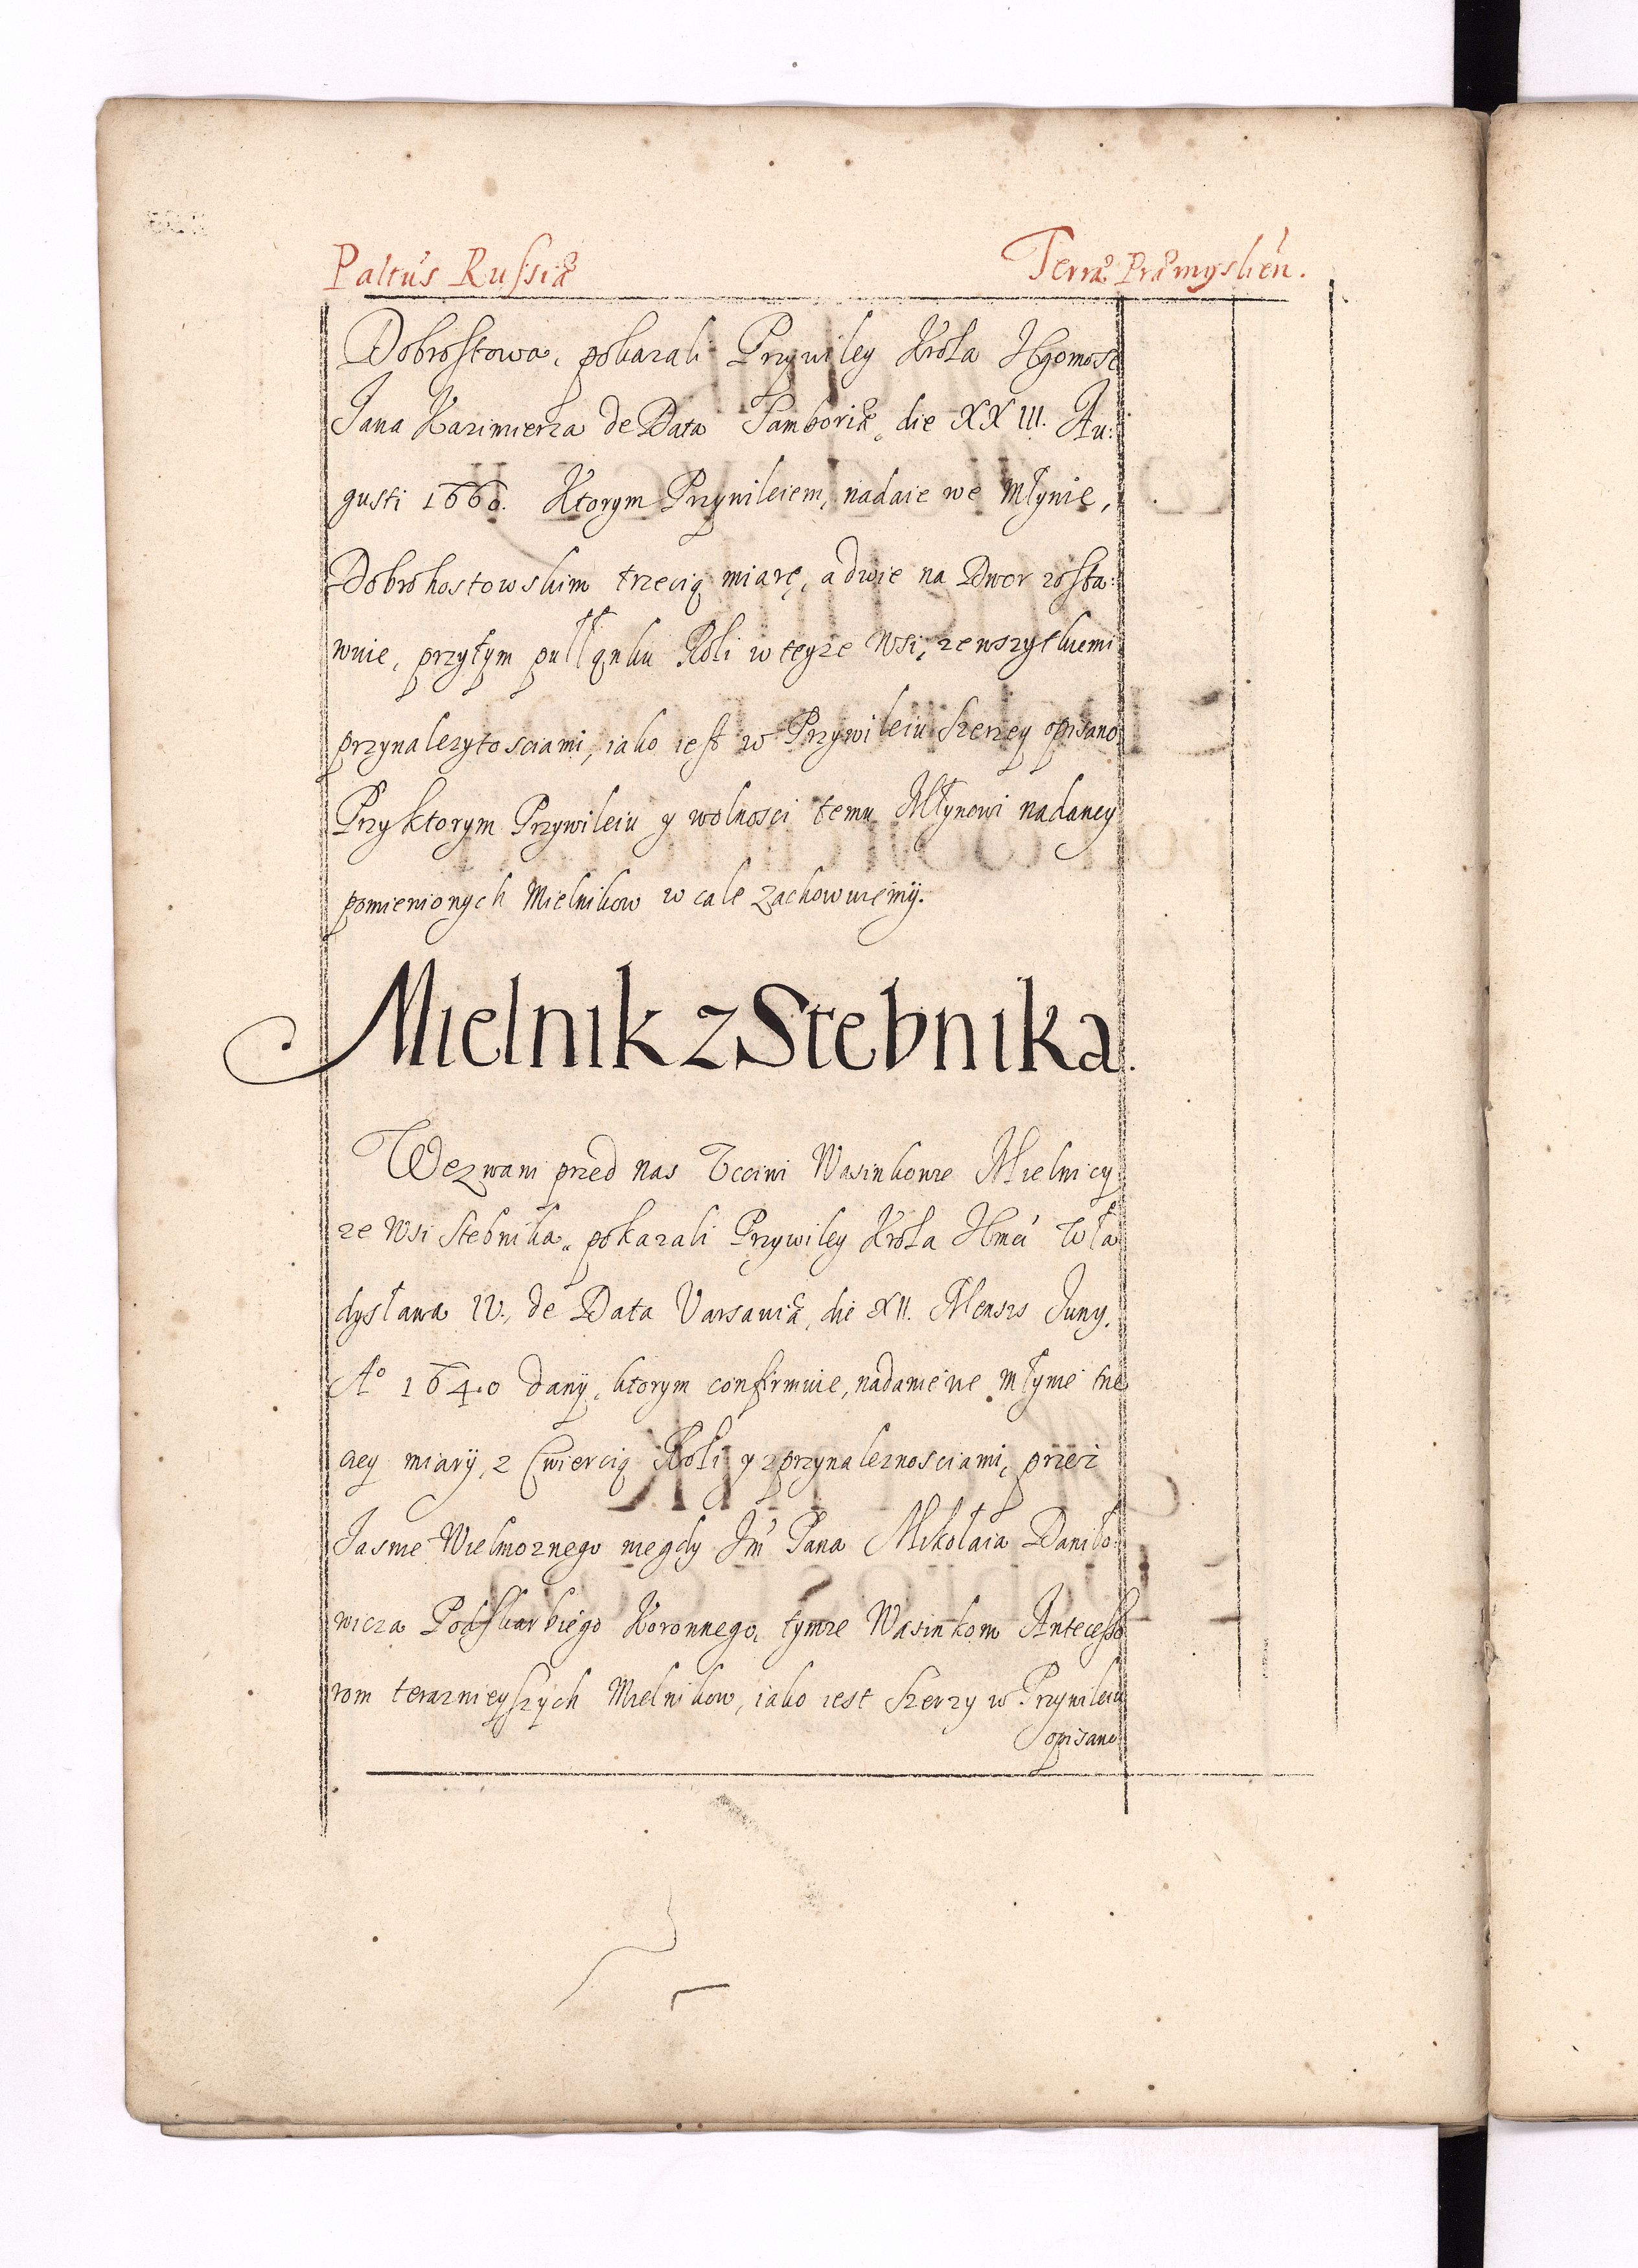 Paltus Russiæ Terræ Præmyslien.
Dobrostowa, pokazali Przywiley Krola Jegomosc
Jana Kazimierza de Data Samboriæ, die XXIII. Au:
gusti 1660. Ktorym Przywileiem, nadaie we Młynie,
Dobrohostowskim trzecią miarę, a dwie na Dwor zosta:
wuie, przytym puł łąnku Roli w teyze Wsi, ze wszytkiemi
przynalezytosciami, iako iest w Przywileiu szerzey opisano
Przyktorym Przywileiu y wolnosci temu Młynowi nadaney
pomienionych Mielnikow w cale zachowuiemÿ.
Mielnik z Stebnika.
Wezwani przed nas Uccivi Wasinkowie Mielnicy
ze Wsi Stebnika, pokazali Przywiley Krola Jmci Wła
dysława IV, de Data Varsaviæ, die XII. Mensis Juny.
Aº 1640 danÿ, ktorym confirmuie, nadanie we młynie trze
ciey miarÿ, z Cwiercią Roli y z przynaleznosciami, przez
Jasnie Wielmoznego niegdy Jm Pana Mikołaia Daniło
wicza Podskarbiego Koronnego, tymze Wasinkom Antecesso
rom teraznieyszÿch Mielnikow, iako iest szerzy w Przywileiu
opisano